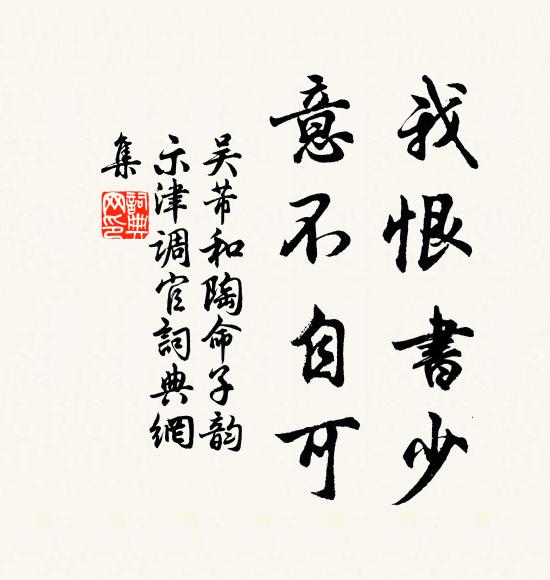 我恨書少
意不自可
吴芾和陶命子韵
示津調官詞典網
集
詞典網印